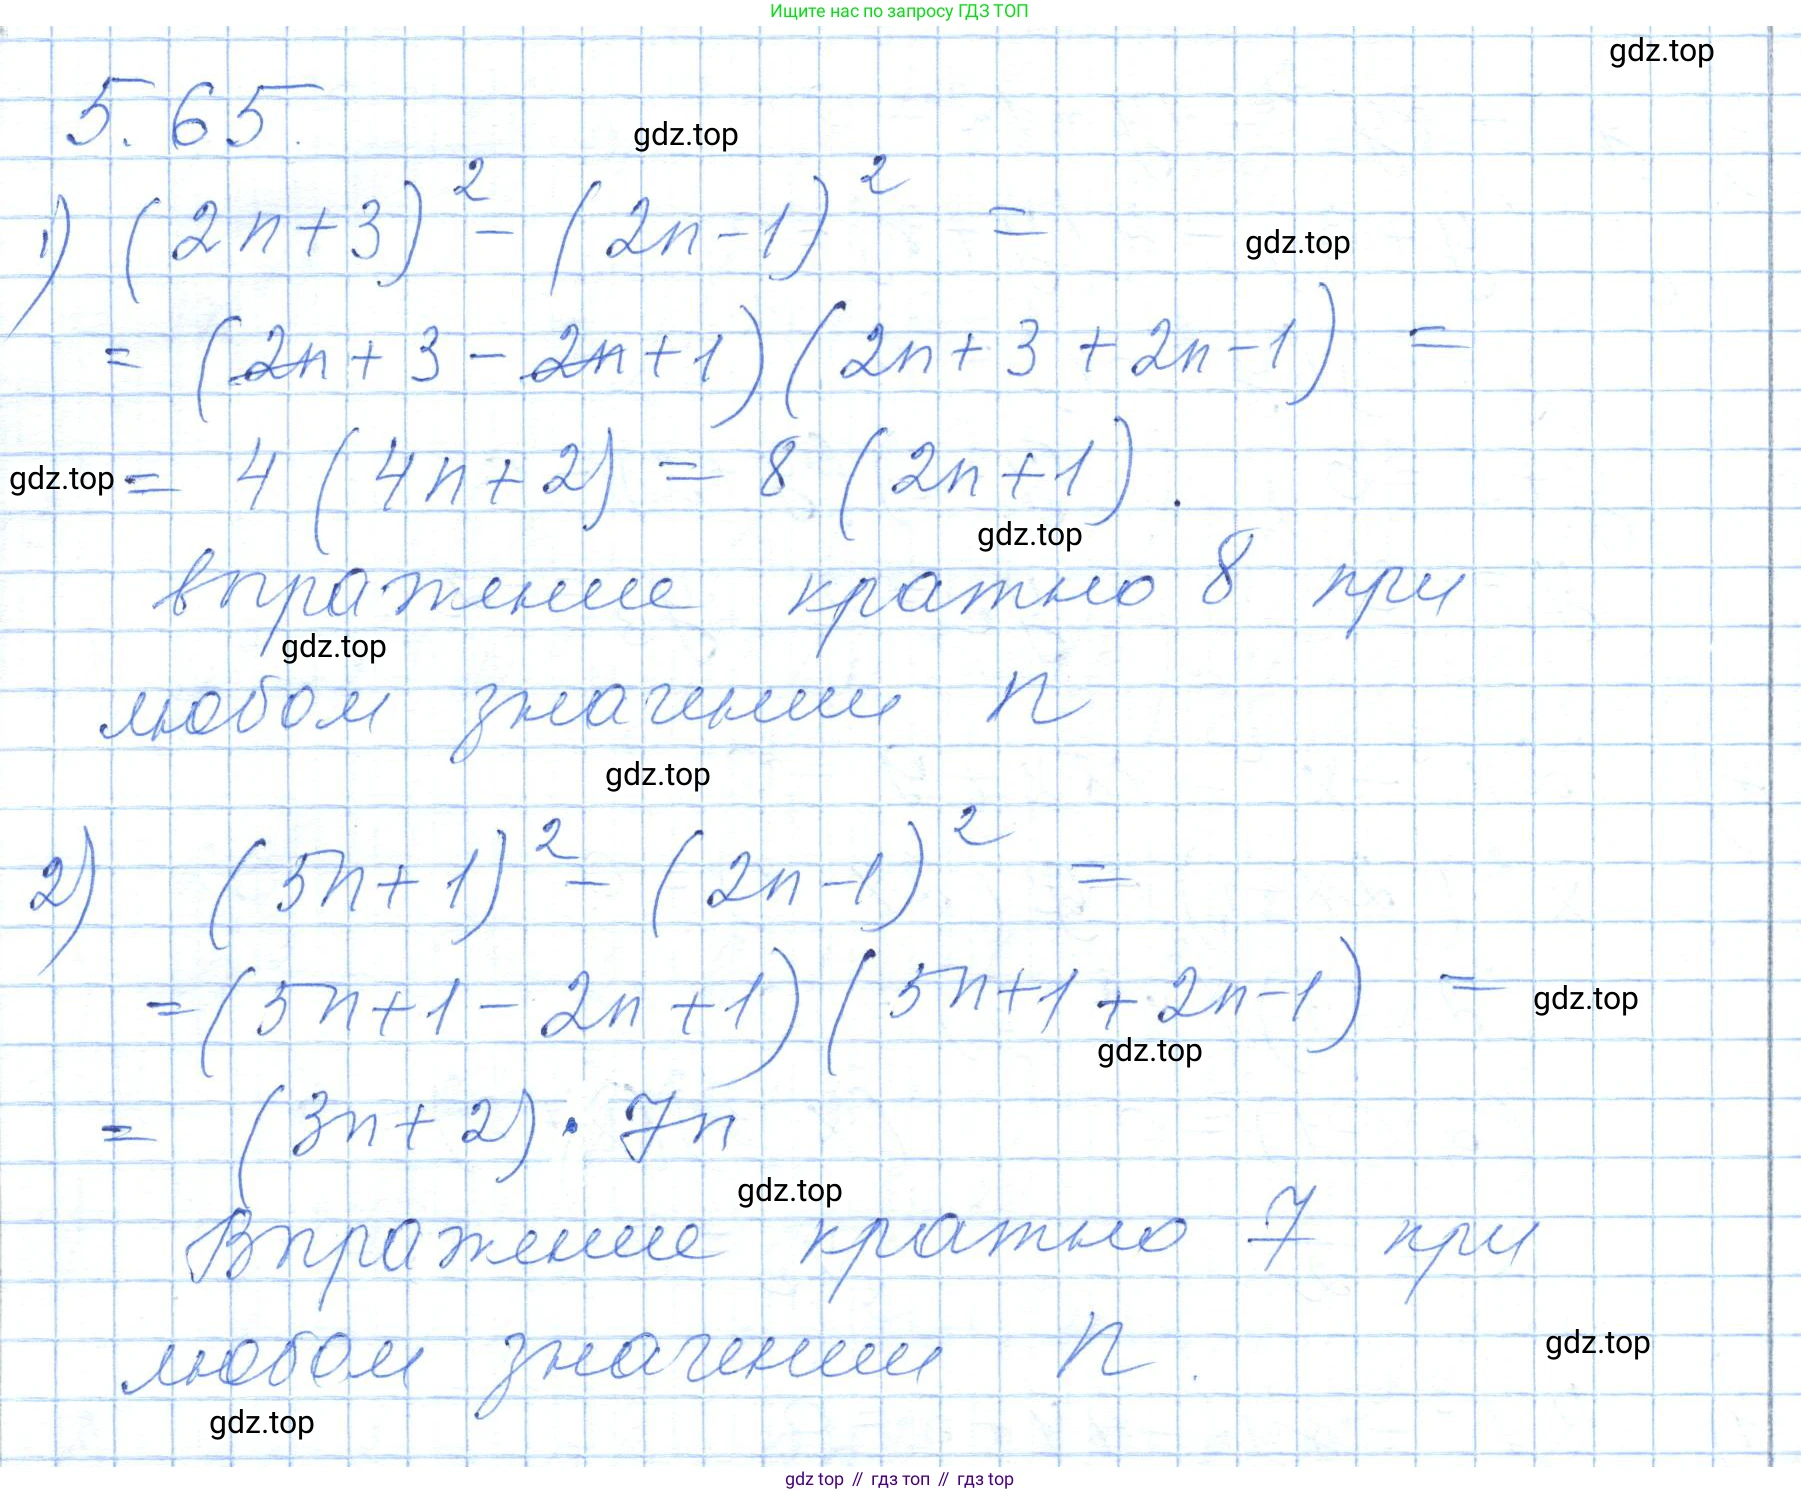 Ищите нас по запросу ГДЗ ТОП
gdz.top
5.65.
gdz.top
1) (2n+3)² - (2n-1)² =
gdz.top
= (2n+3-2n+1)(2n+3+2n-1) =
gdz.top = 4(4n+2) = 8(2n+1).
gdz.top
выражение кратно 8 при
gdz.top
любом значении n
gdz.top
2) (5n+1)² - (2n-1)² =
= (5n+1-2n+1)(5n+1+2n-1) =
gdz.top
gdz.top
= (3n+2)·7n
gdz.top
Выражение кратно 7 при
любом значении n.
gdz.top
gdz.top
gdz top // гдз топ // гдз top